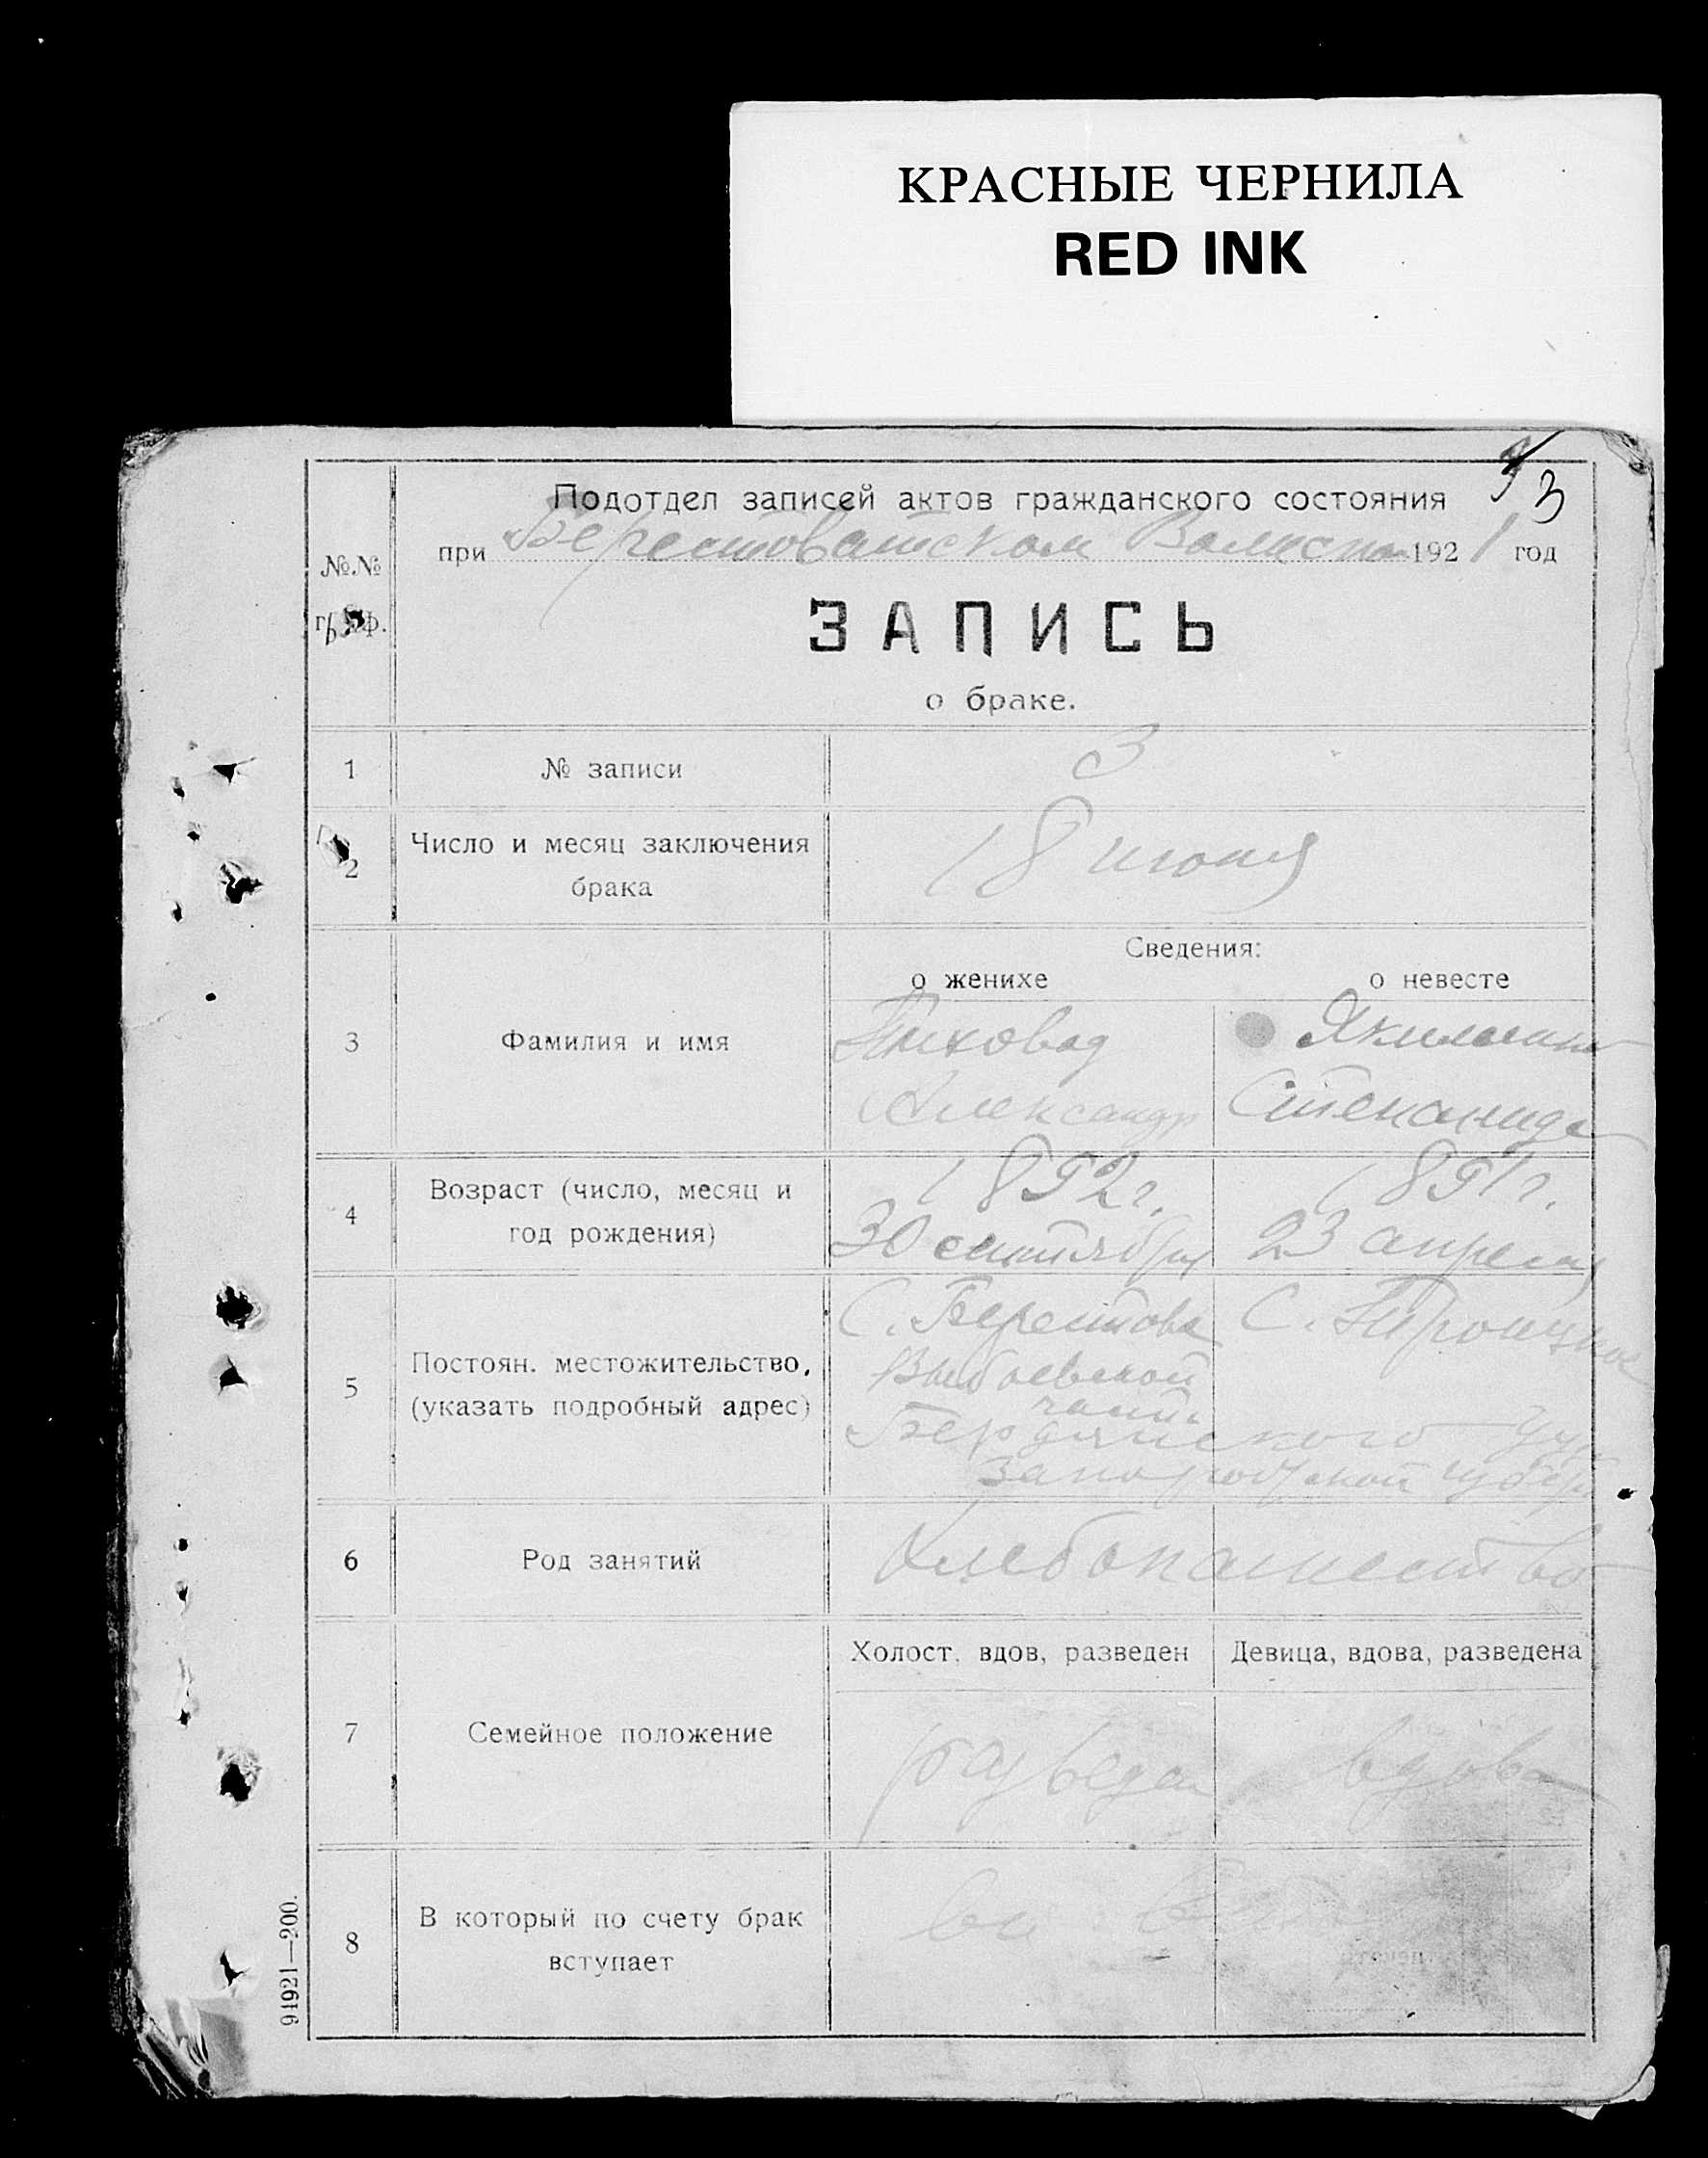 КРАСНЫЕ ЧЕРНИЛА
RED INK
3
Подотдел записей актов гражданского состояния
при Берестоватском 1921 год
№№
граф.
ЗАПИСЬ
о браке.
1 № записи 3
2 Число и месяц заключения
брака
18 июня
Сведения:
о женихе о невесте
3 Фамилия и имя
Александр Степанида
4 Возраст (число, месяц и
год рождения)
1892 г. 1891 г.
30 сентября 23 апреля
5 Постоян. местожительство,
(указать подробный адрес)
С. Берестова С. Троицкое
части
Бердянского
Запорожской губер
6 Род занятий Хлебопашество
Холост, вдов, разведен Девица, вдова, разведена
7 Семейное положение разведен вдова
8 В который по счету брак
вступает
91921—200.